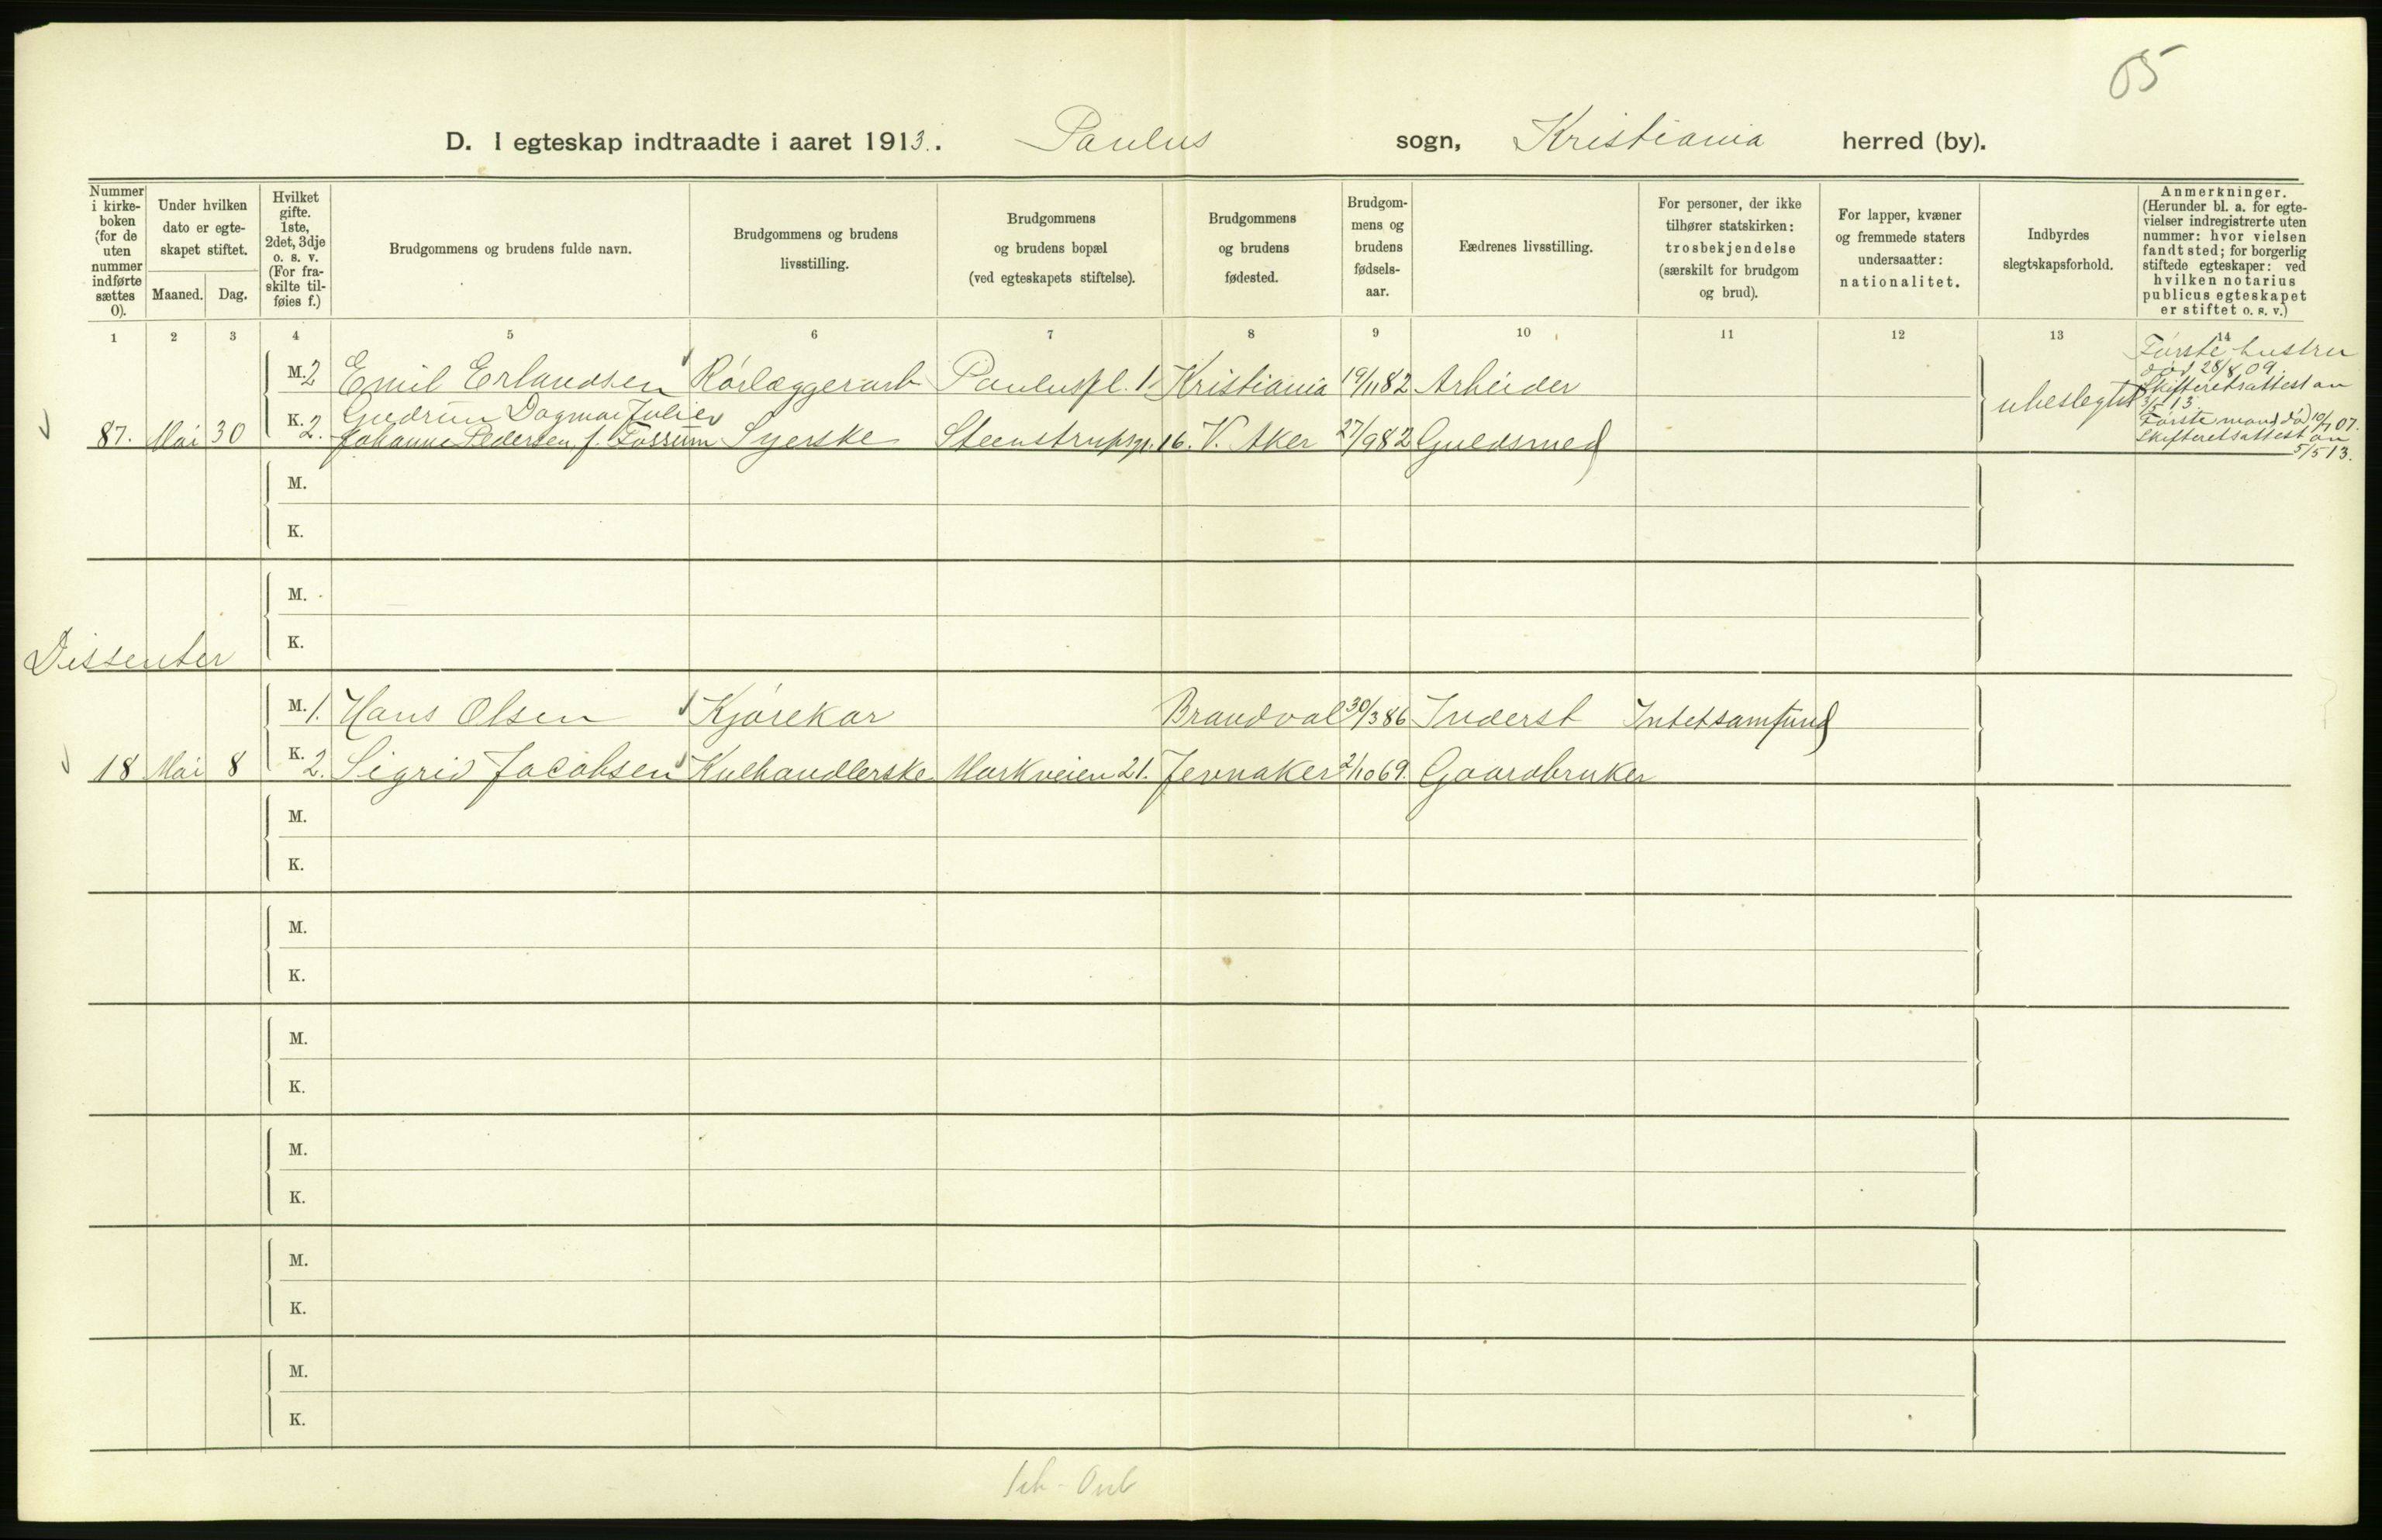 65
D. I egteskap indtraadte i aaret 1913. Paulus sogn, Kristiania herred (by).
Nummer i kirke-boken (for de uten nummer indførte sættes 0).
Under hvilken dato er egte-skapet stiftet.
Maaned. Dag.
Hvilket gifte. 1ste, 2det, 3dje o. s. v. (For fra-skilte til-føies f.)
Brudgommens og brudens fulde navn.
Brudgommens og brudens livsstilling.
Brudgommens og brudens bopæl (ved egteskapets stiftelse).
Brudgommens og brudens fødested.
Brudgom-mens og brudens fødsels-aar.
Fædrenes livsstilling.
For personer, der ikke tilhører statskirken: trosbekjendelse (særskilt for brudgom og brud).
For lapper, kvæner og fremmede staters undersaatter: nationalitet.
Indbyrdes slegtskapsforhold.
Anmerkninger. (Herunder bl. a. for egte-vielser indregistrerte uten nummer: hvor vielsen fandt sted; for borgerlig stiftede egteskaper: ved hvilken notarius publicus egteskapet er stiftet o. s. v.)
1 2 3 4 5 6 7 8 9 10 11 12 13 14
M. 2 Emil Erlandsen Rørlæggerarb Pauluspl. 1 Kristiania 19/11 82 Arbeider
87. Mai 30 K. 2. Gudrun Dagmar Julie
Johanne Pedersen, f. Fossum Syerske Steenstrupsgt. 16. V. Aker 27/9 82 Guldsmed
ubeslegtet
Første hustru
død 28/8 09.
Skifteretsattest av
3/5 13.
Første mand dø) 10/7 07.
Skifteretsattest av
5/5 13.
M.
K.
M.
K.
Dissenter
M. 1. Hans Olsen Kjørekar Brandval 30/3 86 Inderst Intet samfund
18 Mai 8 K. 2. Sigrid Jacobsen Kulhandlerske Markveien 21. Jevnaker 2/10 69. Gaardbruker
M.
K.
M.
K.
M.
K.
M.
K.
M.
K.
M.
K.